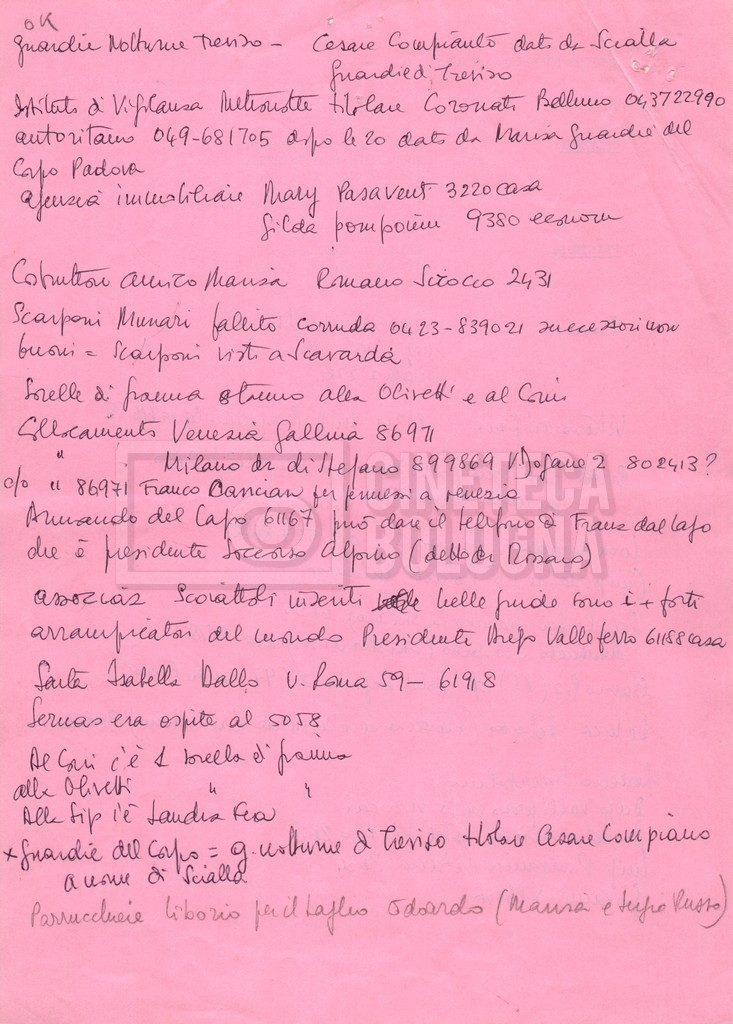 OK
Guardie Notturne Treviso - Cesare Compianto dato da Scialla
Guardie di Treviso
Istituto di Vigilanza Metronotte titolare Coronati Belluno 043722990
autoritano 049-681705 dopo le 20 dato da Marisa Guardie del
Corpo Padova
agenzia immobiliare Mary Pasavent 3220 casa
Gilda pomponim 9380
Costruttori amico Marisa Romano Sirocco 2431
Scarponi Munari fallito cornuda 0423-839021 successori non
buoni = Scarponi visti a Scavarda
Sorelle di franna stanno alla Olivetti e al Coni
Collocamento Venezia Gallina 86971
" Milano dr di Stefano 899869 V. Dogane 2 802413?
c/o " 86971 Franco Dancian per permessi a venezia
Armando del Capo 61167 può dare il telefono di Franz dal Lago
che è presidente Soccorso Alpino (detto da Rossano)
associaz Scoiattoli inseriti nelle guide sono i + forti
arrampicatori del mondo Presidente Diego Valleferro 61188 casa
Santa Isabella Dallo V. Roma 59 - 61918
Sernas era ospite al 5058
Al Coni c'è 1 sorella di franna
alla Olivetti " "
Alla Sip c'è Sandra Fera
x Guardie del Corpo = g. notturne di Treviso titolare Cesare Compiano
a nome di Scialla
Parrucchiere Liborio per il taglio Odoardo (Marisa e Sergio Russo)
CINETECA
BOLOGNA